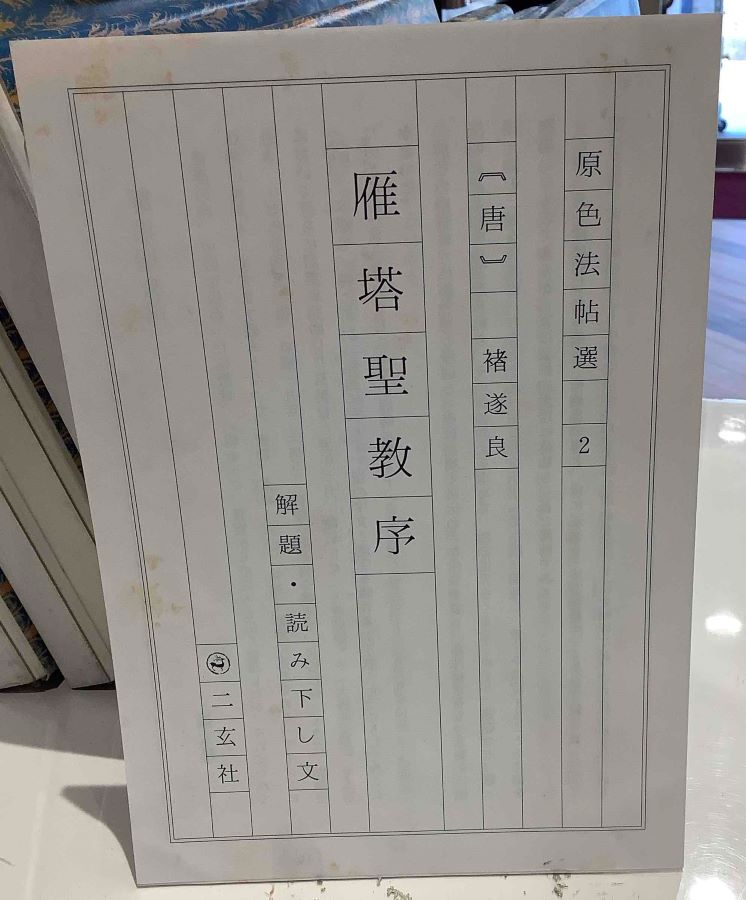 原色法帖選 2
〔唐〕 褚遂良
雁塔聖教序
解題・読み下し文
二玄社